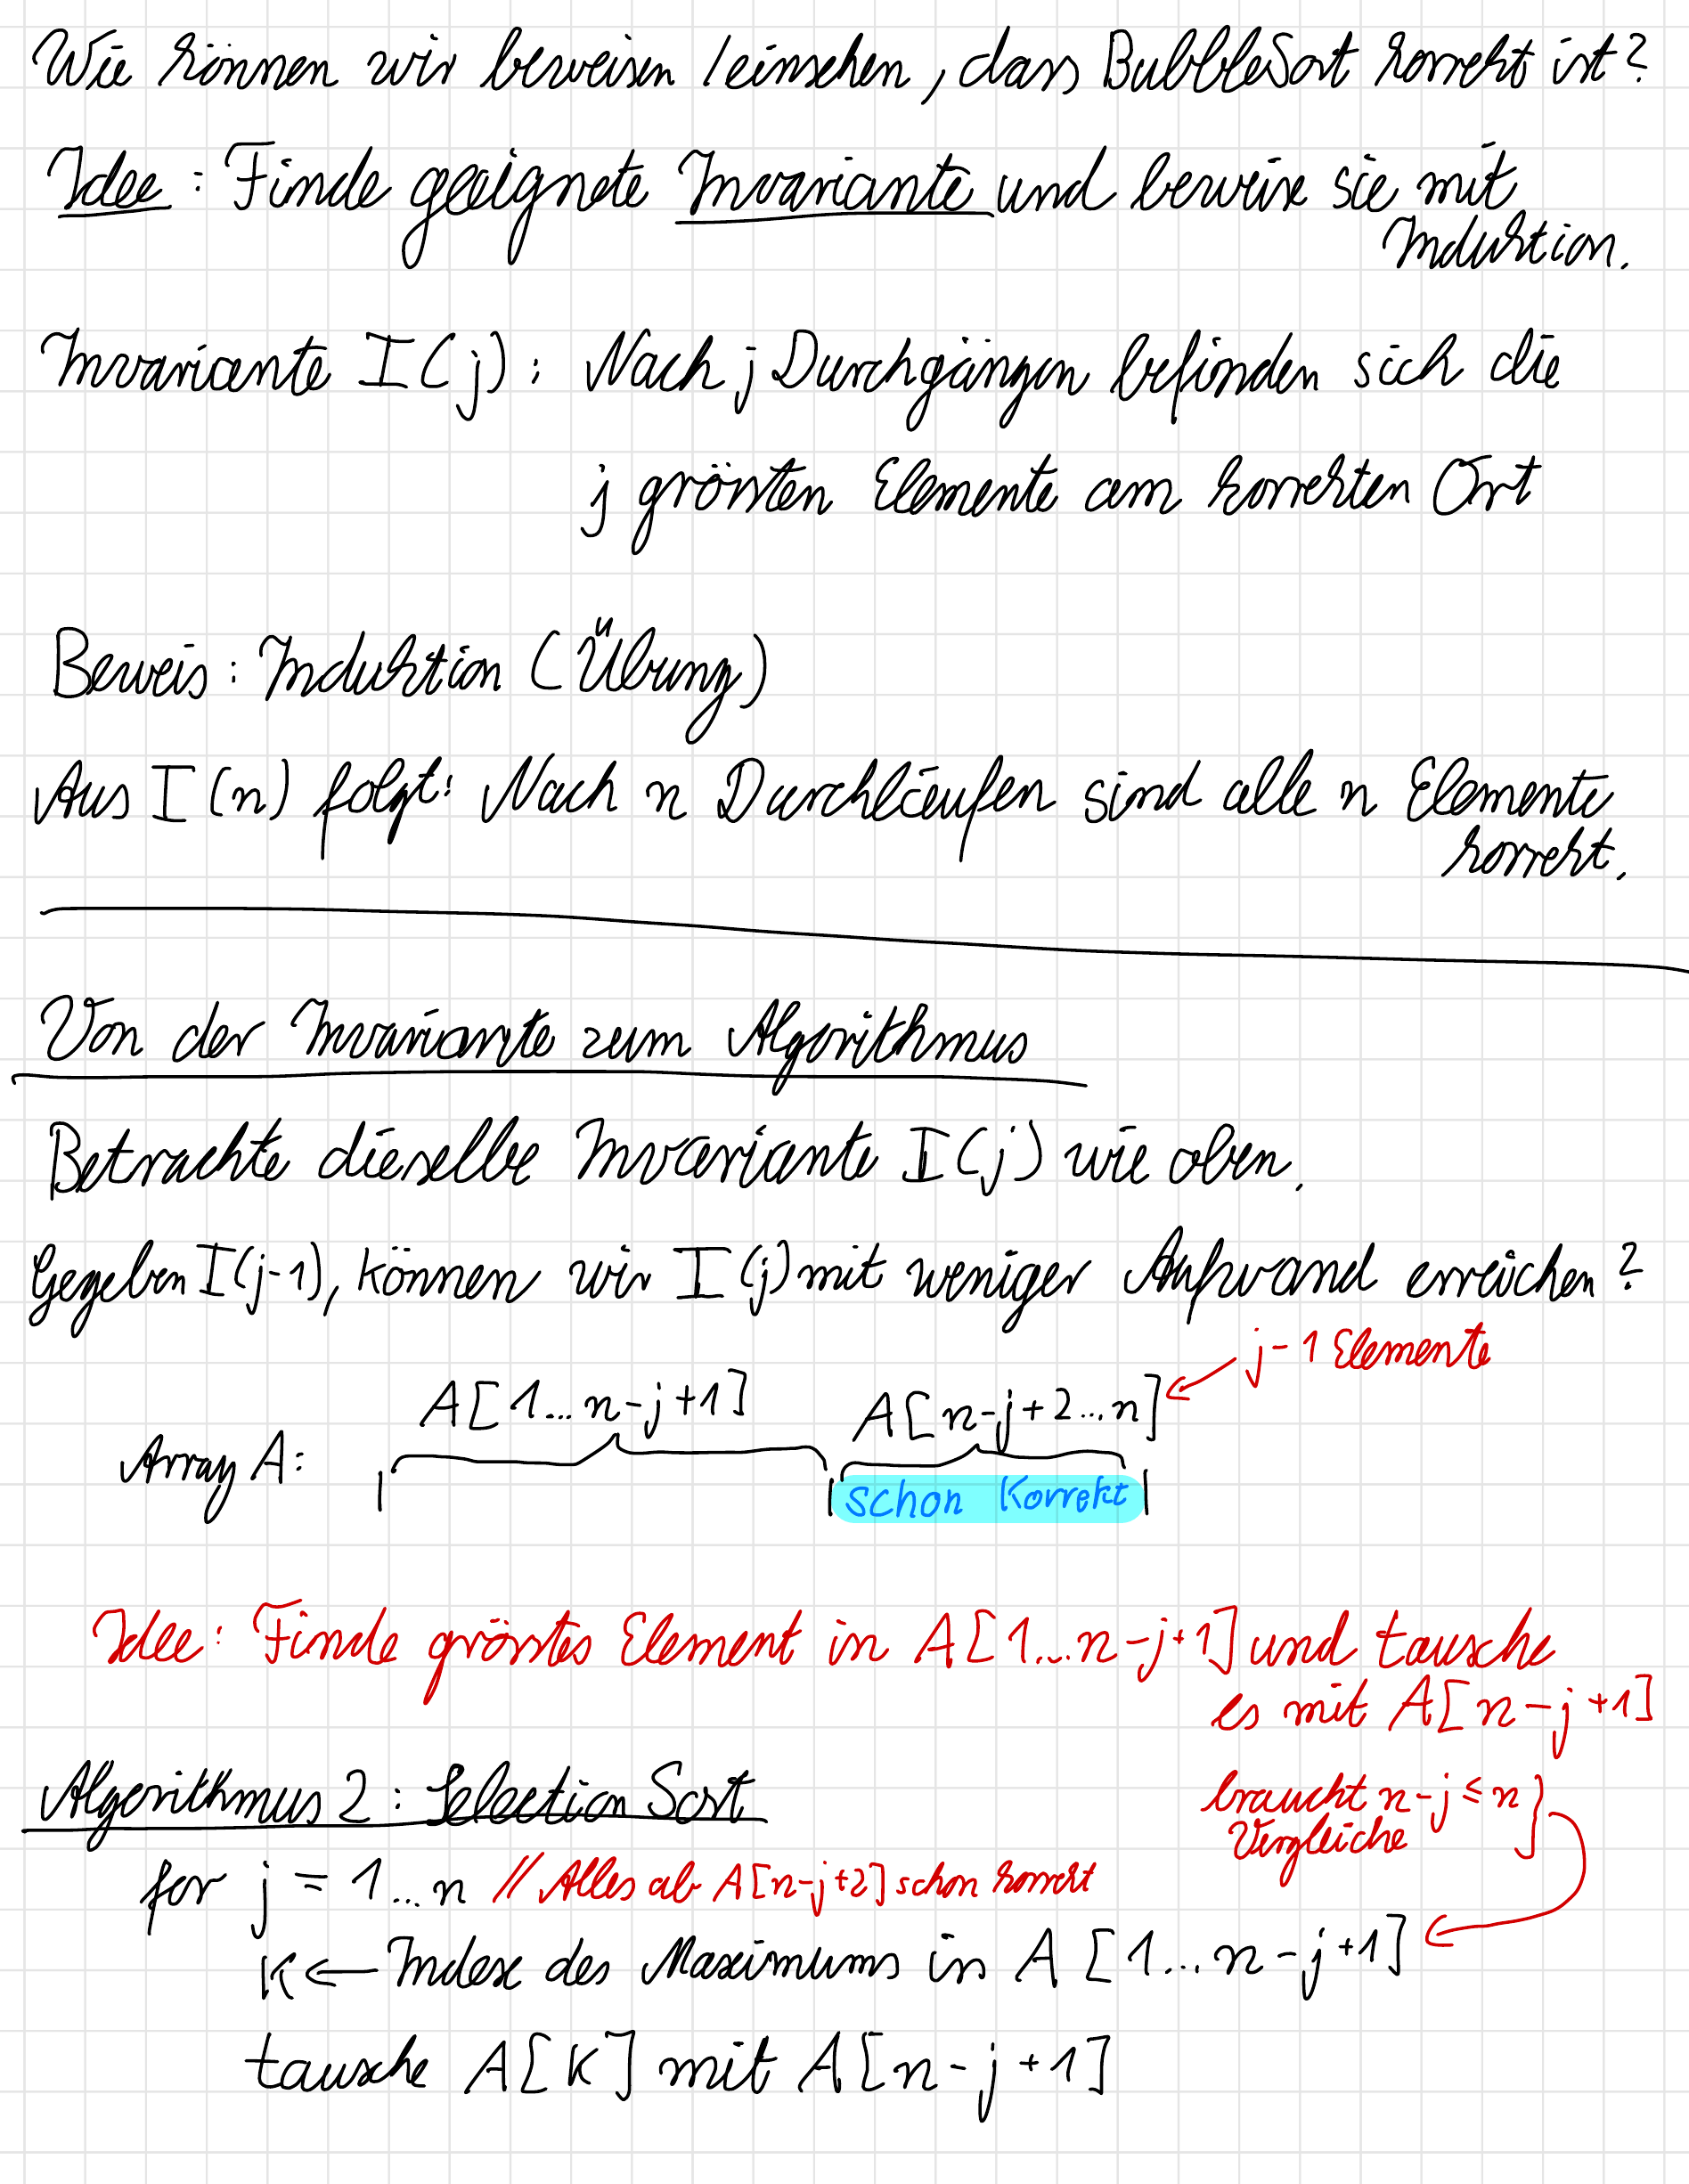 Wie können wir beweisen / einsehen, dass BubbleSort korrekt ist?
Idee: Finde geeignete Invariante und beweise sie mit
Induktion.
Invariante I(j): Nach j Durchgängen befinden sich die
j grössten Elemente am korrekten Ort
Beweis: Induktion (Übung)
Aus I(n) folgt: Nach n Durchläufen sind alle n Elemente
korrekt.
Von der Invariante zum Algorithmus
Betrachte dieselbe Invariante I(j) wie oben.
Gegeben I(j-1), können wir I(j) mit weniger Aufwand erreichen?
j-1 Elemente
A[1...n-j+1] A[n-j+2...n]
Array A:
schon korrekt
Idee: Finde grösstes Element in A[1...n-j+1] und tausche
es mit A[n-j+1]
braucht n-j ≤ n
Vergleiche
Algorithmus 2: Selection Sort
for j = 1...n // Alles ab A[n-j+2] schon korrekt
K ← Index des Maximums in A[1...n-j+1]
tausche A[K] mit A[n-j+1]